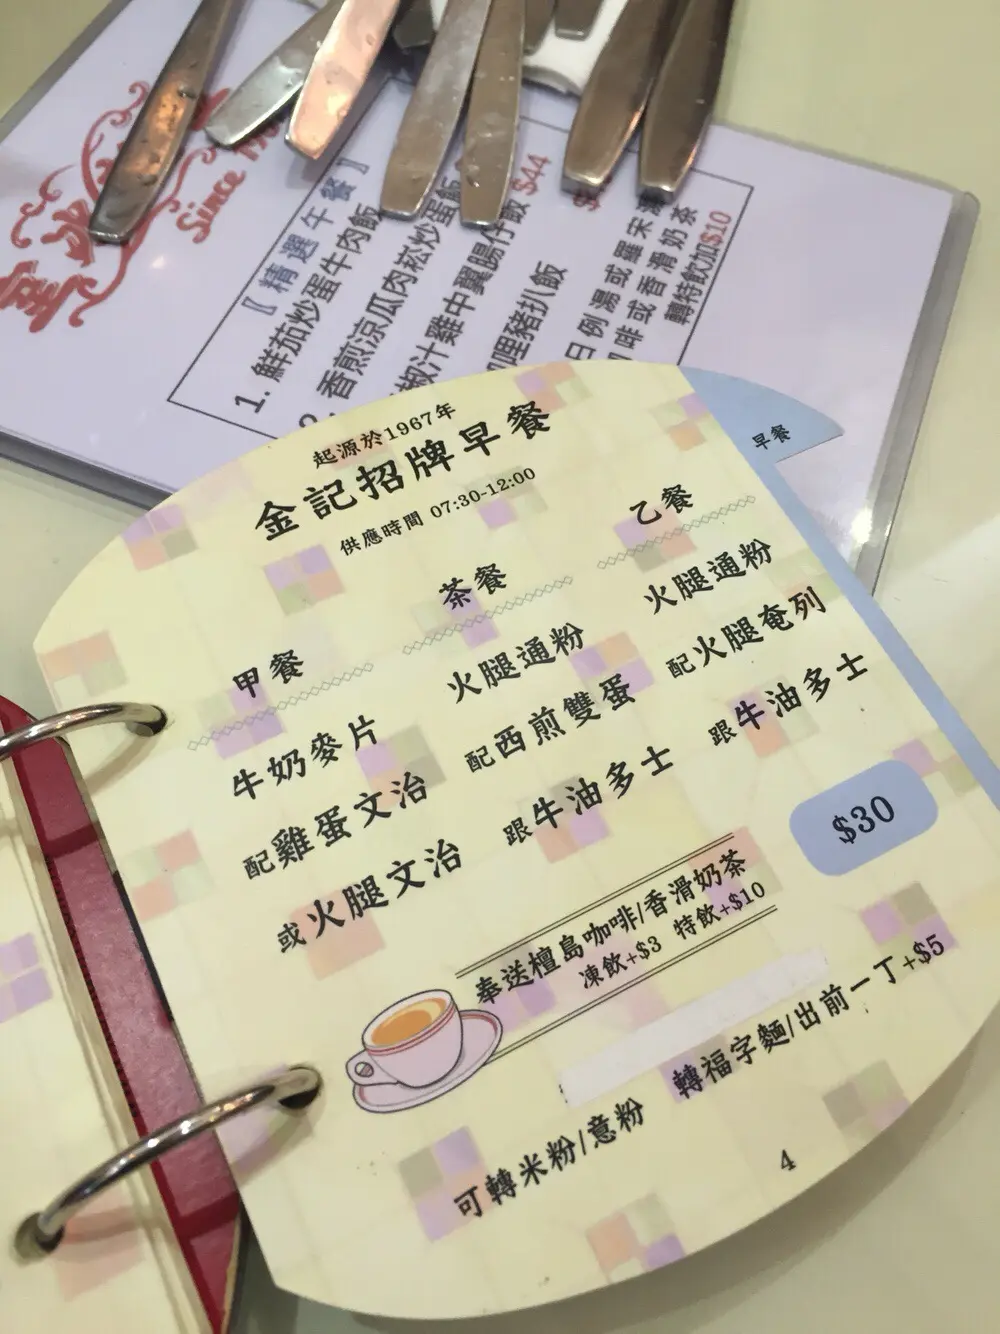 Since
【精選午餐】
1. 鮮茄炒蛋牛肉飯
香煎涼瓜肉崧炒蛋飯
椒汁雞中翼腸仔飯 $44
哩豬扒飯
日例湯或羅宋
啡或香滑奶茶
轉特飲加$10
早餐
起源於1967年
金記招牌早餐
供應時間 07:30-12:00
甲餐
牛奶麥片
配雞蛋文治
或火腿文治
茶餐
火腿通粉
配西煎雙蛋
跟牛油多士
乙餐
火腿通粉
配火腿奄列
跟牛油多士
$30
奉送檀島咖啡/香滑奶茶
凍飲+$3 特飲+$10
轉福字麵/出前一丁+$5
可轉米粉/意粉
4